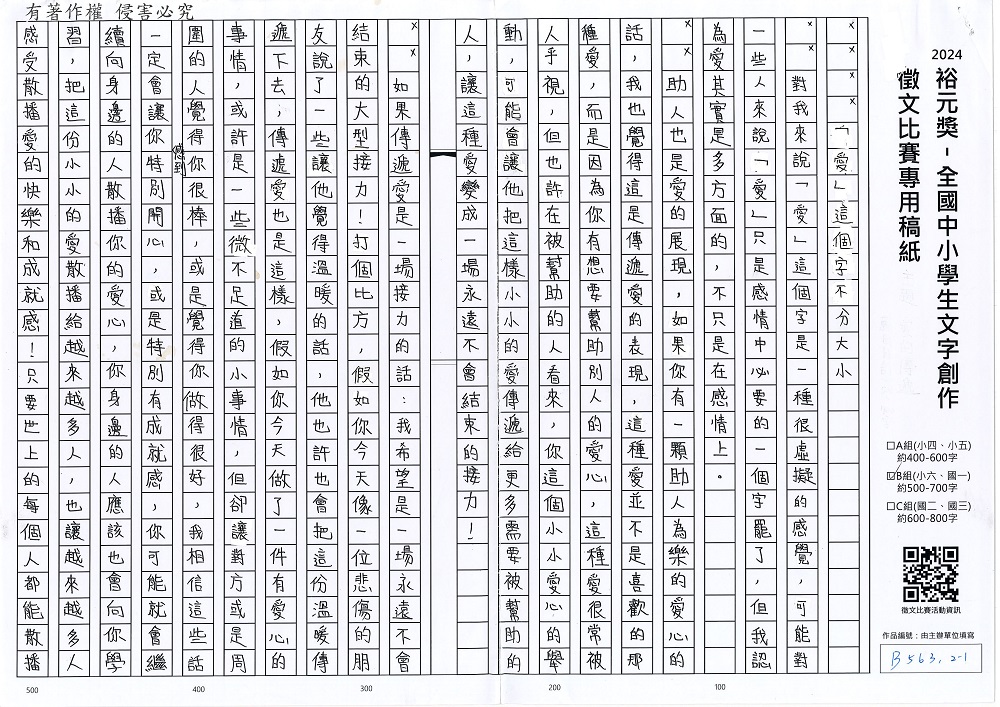 有著作權 侵害必究
2024
裕元獎-全國中小學生文字創作
徵文比賽專用稿紙
□A組(小四、小五)
約400-600字
☑B組(小六、國一)
約500-700字
□C組(國二、國三)
約600-800字
徵文比賽活動資訊
作品編號：由主辦單位填寫
B563.2-1
「愛」這個字不分大小
對我來說「愛」這個字是一種很虛擬的感覺，可能對
一些人來說「愛」只是感情中必要的一個字罷了，但我認
為愛其實是多方面的，不只是在感情上。
助人也是愛的展現，如果你有一顆助人為樂的愛心的
話，我也覺得這是傳遞愛的表現，這種愛並不是喜歡的那
種愛，而是因為你有想要幫助別人的愛心，這種愛很常被
人乎視，但也許在被幫助的人看來，你這個小小愛心的舉
動，可能會讓他把這樣小小的愛傳遞給更多需要被幫助的
人，讓這種愛變成一場永遠不會結束的接力！
如果傳遞愛是一場接力的話：我希望是一場永遠不會
結束的大型接力！打個比方，假如你今天像一位悲傷的朋
友說了一些讓他覺得溫暖的話，他也許也會把這份溫暖傳
遞下去；傳遞愛也是這樣，假如你今天做了一件有愛心的
事情，或許是一些微不足道的小事情，但卻讓對方或是周
圍的人覺得感到你很棒，或是覺得你做得很好，我相信這些話
一定會讓你特別開心，或是特別有成就感，你可能就會繼
續向身邊的人散播你的愛心，你身邊的人應該也會向你學
習，把這份小小的愛散播給越來越多人，也讓越來越多人
感受散播愛的快樂和成就感！只要世上的每個人都能散播
100
200
300
400
500